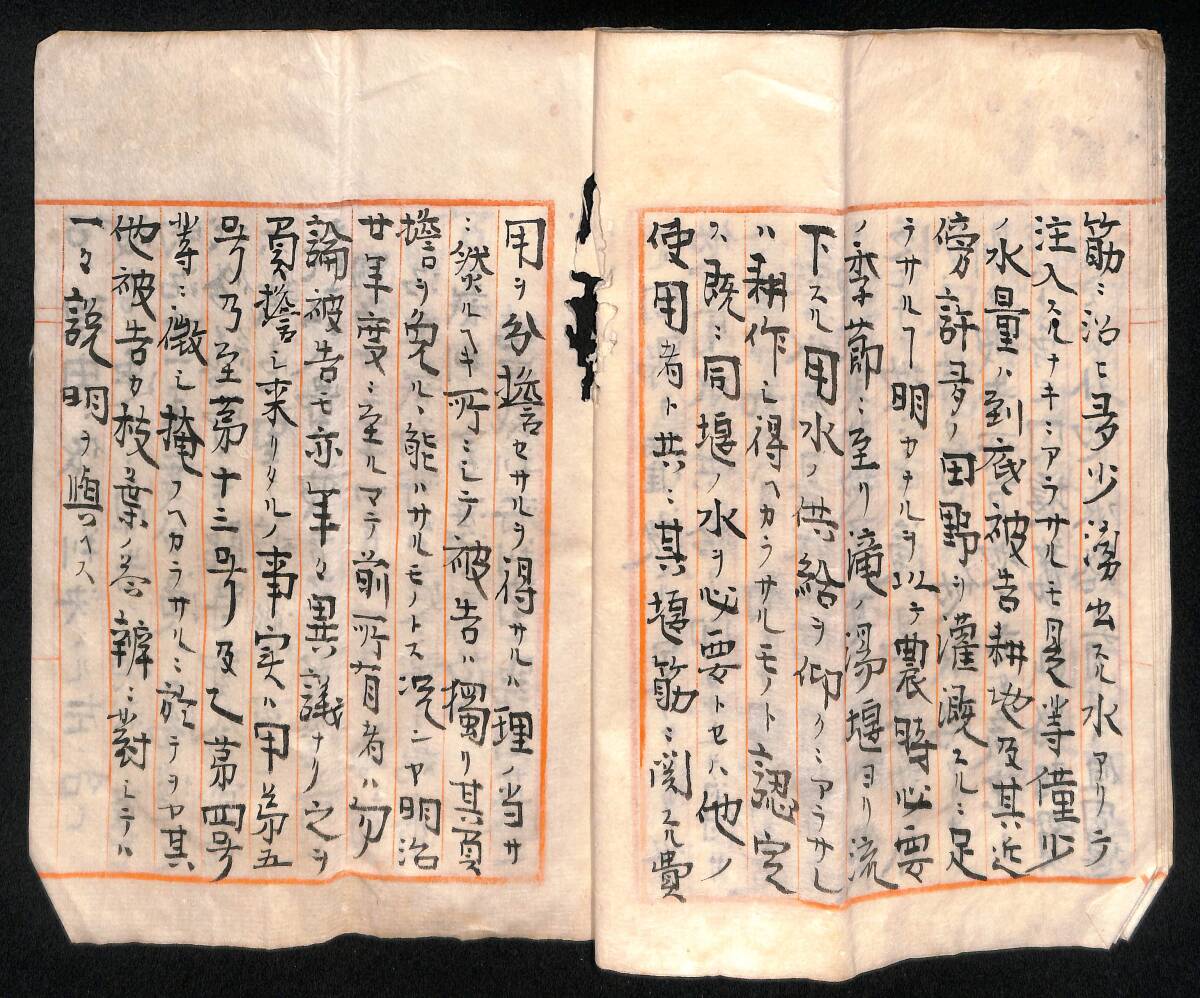 筋ニ沿ヒ多少湧出スル水アリテ
注入スルナキニアラサルモ是等僅少
ノ水量ハ到底被告耕地及其近
傍許多ノ田野ヲ灌漑スルニ足
ラサルヿ明カナルヲ以テ農時必要
ノ季節ニ至リ滝ノ湯堰ヨリ流
下スル用水ノ供給ヲ仰クニアラサレ
ハ耕作シ得ヘカラサルモノト認定
ス既ニ同堰ノ水ヲ必要トセハ他ノ
使用者ト共ニ其堰筋ニ関スル費
用ヲ分擔セサルヲ得サルハ理ノ当サ
ニ然ルヘキ所ニシテ被告ハ獨リ其負
擔ヲ免ルヽ能ハサルモノトス况ンヤ明治
廿年度ニ至ルマテ前所有者ハ勿
論被告モ亦年々異議ナク之ヲ
負擔シ来リタルノ事実ハ甲第五
号乃至第十三号及乙第四号
等ニ徴シ掩フヘカラサルニ於テヲヤ其
他被告カ枝葉ノ答辯ニ對シテハ
一々説明ヲ與ヘス